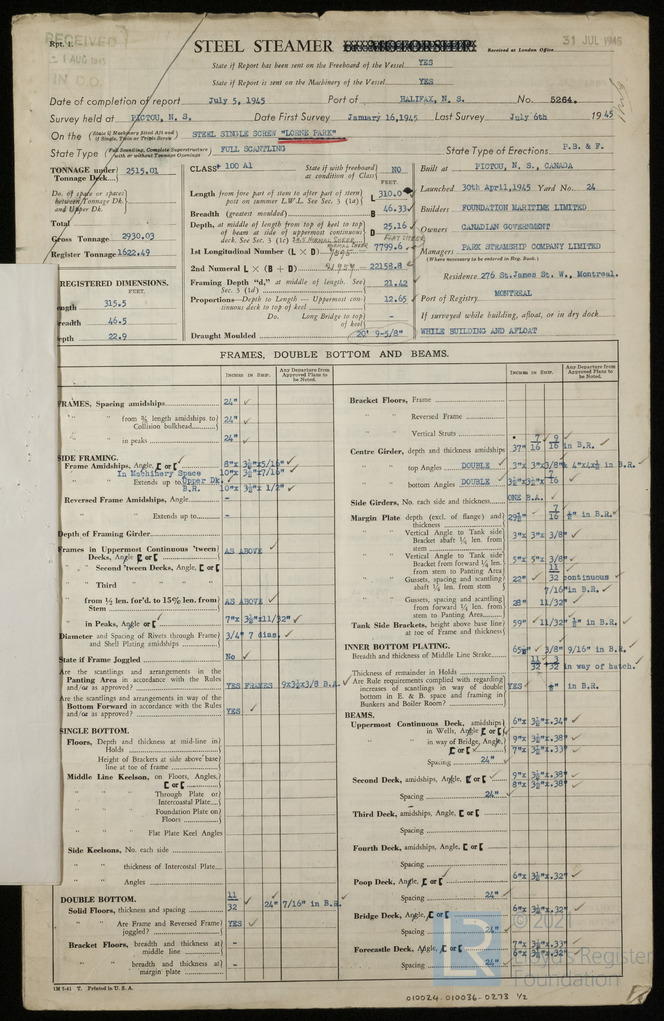 RECEIVED
1 AUG 1945
IN D.O.
Rpt. 1.
STEEL STEAMER or MOTORSHIP.
Received at London Office
31 JUL 1945
State if Report has been sent on the Freeboard of the Vessel YES
State if Report is sent on the Machinery of the Vessel YES
Date of completion of report July 5, 1945 Port of HALIFAX, N. S. No. 5264.
Survey held at PICTOU, N. S. Date First Survey January 16,1945 Last Survey July 6th 1945
On the (State if Machinery fitted Aft and if Single, Twin or Triple Screw) STEEL SINGLE SCREW "LORNE PARK"
State Type (Full Scantling, Complete Superstructure with or without Tonnage Openings) FULL SCANTLING State Type of Erections P.B. & F.
TONNAGE under Tonnage Deck 2515.01
Do. of space or spaces between Tonnage Dk. and Upper Dk.
Total
Gross Tonnage 2930.03
Register Tonnage 1622.49
REGISTERED DIMENSIONS.
FEET.
ength 315.5
readth 46.5
epth 22.9
CLASS 100 A1 State if with freeboard as condition of Class NO
FEET.
Length from fore part of stem to after part of stern post on summer L.W.L. See Sec. 3 (1a) L 310.0
Breadth (greatest moulded) B 46.33
Depth, at middle of length from top of keel to top of beam at side of uppermost continuous deck. See Sec. 3 (1c) D 25.16
1st Longitudinal Number (L × D) 7799.6
2nd Numeral L × (B + D) 22158.8
Framing Depth "d," at middle of length. See Sec. 5 (1d) 21.42
Proportions—Depth to Length—Uppermost continuous deck to top of keel 12.65
Do. Long Bridge to top of keel -
Draught Moulded 20' 9-5/8"
Built at PICTOU, N. S., CANADA
Launched 30th April,1945 Yard No. 24
Builders FOUNDATION MARITIME LIMITED
Owners CANADIAN GOVERNMENT
Managers PARK STEAMSHIP COMPANY LIMITED
(Where necessary to be entered in Reg. Book.)
Residence 276 St.James St. W., Montreal.
Port of Registry MONTREAL
If surveyed while building, afloat, or in dry dock
WHILE BUILDING AND AFLOAT
FRAMES, DOUBLE BOTTOM AND BEAMS.
INCHES IN SHIP. Any Departure from Approved Plans to be Noted.
FRAMES, Spacing amidships 24"
" " from ⅗ length amidships to Collision bulkhead 24"
" " in peaks 24"
SIDE FRAMING.
Frame Amidships, Angle, [ or [ 8"x 3½"x5/16"
In Machinery Space 10"x 3½"x7/16"
" " Extends up to Upper Dk.
B.R. 10"x 3½"x 1/2"
Reversed Frame Amidships, Angle -
" " Extends up to -
Depth of Framing Girder
Frames in Uppermost Continuous 'tween Decks, Angle, [ or [ AS ABOVE
" Second 'tween Decks, Angle, [ or [
" Third " "
" from ½ len. for'd. to 15% len. from Stem AS ABOVE
" in Peaks, Angle or [ 7"x 3½"x11/32"
Diameter and Spacing of Rivets through Frame and Shell Plating amidships 3/4" 7 dias.
State if Frame Joggled No
Are the scantlings and arrangements in the Panting Area in accordance with the Rules and/or as approved? YES FRAMES 9x3½x3/8 B.A.
Are the scantlings and arrangements in way of the Bottom Forward in accordance with the Rules and/or as approved? YES
SINGLE BOTTOM.
Floors, Depth and thickness at mid-line in Holds
" Height of Brackets at side above base line at toe of frame
Middle Line Keelson, on Floors, Angles, [ or [
" " Through Plate or Intercostal Plate
" " Foundation Plate on Floors
" " Flat Plate Keel Angles
Side Keelsons, No. each side
" " thickness of Intercostal Plate
" " Angles
DOUBLE BOTTOM.
Solid Floors, thickness and spacing 11/32 24" 7/16" in B.R.
" " Are Frame and Reversed Frame joggled? YES
Bracket Floors, breadth and thickness at middle line -
" " breadth and thickness at margin plate -
INCHES IN SHIP. Any Departure from Approved Plans to be Noted.
Bracket Floors, Frame
" " Reversed Frame
" " Vertical Struts
Centre Girder, depth and thickness amidships 37" 7/16 9/16 in B.R.
" " top Angles DOUBLE 3"x 3"x3/8" & 4"x4x½ in B.R.
" " bottom Angles DOUBLE 3½"x3½"x 7/16
Side Girders, No. each side and thickness ONE B.A.
Margin Plate depth (excl. of flange) and thickness 29½" 7/16 ½" in B.R.
" " Vertical Angle to Tank side Bracket abaft ¼ len. from stem 3"x 3"x 3/8"
" " Vertical Angle to Tank side Bracket from forward ¼ len. from stem to Panting Area 5"x 5"x 3/8"
" " Gussets, spacing and scantling abaft ¼ len. from stem 22" 11/32 continuous 7/16"in B.R.
" " Gussets, spacing and scantling from forward ¼ len. from stem to Panting Area 28" 11/32"
Tank Side Brackets, height above base line at toe of Frame and thickness 59" 11/32" ½" in B.R.
INNER BOTTOM PLATING.
Breadth and thickness of Middle Line Strake 65½" 3/8" 9/16" in B.R.
Thickness of remainder in Holds 11/32 in way of hatch.
Are Rule requirements complied with regarding increases of scantlings in way of double bottom in E. & B. space and framing in Bunkers and Boiler Room? YES ½" in B.R.
BEAMS.
Uppermost Continuous Deck, amidships in Wells, Angle [ or [ 6"x 3½"x.34"
" " in way of Bridge, Angle, [ or [ 9"x 3½"x.38"
7"x 3½"x.33"
Spacing 24"
Second Deck, amidships, Angle, [ or [ 9"x 3½"x.38"
8"x 3½"x.38"
Spacing 24"
Third Deck, amidships, Angle, [ or [
Spacing
Fourth Deck, amidships, Angle, [ or [
Spacing
Poop Deck, Angle, [ or [ 6"x 3½"x.32"
Spacing 24"
Bridge Deck, Angle, [ or [ 6"x 3½"x.32"
Spacing 24"
Forecastle Deck, Angle, [ or [ 7"x 3½"x.33"
6"x 3½"x.32"
Spacing 24"
1M 7-41 T. Printed in U. S. A.
010024-010036-0273 1/2
LR
© 2021
Lloyd's Register
Foundation